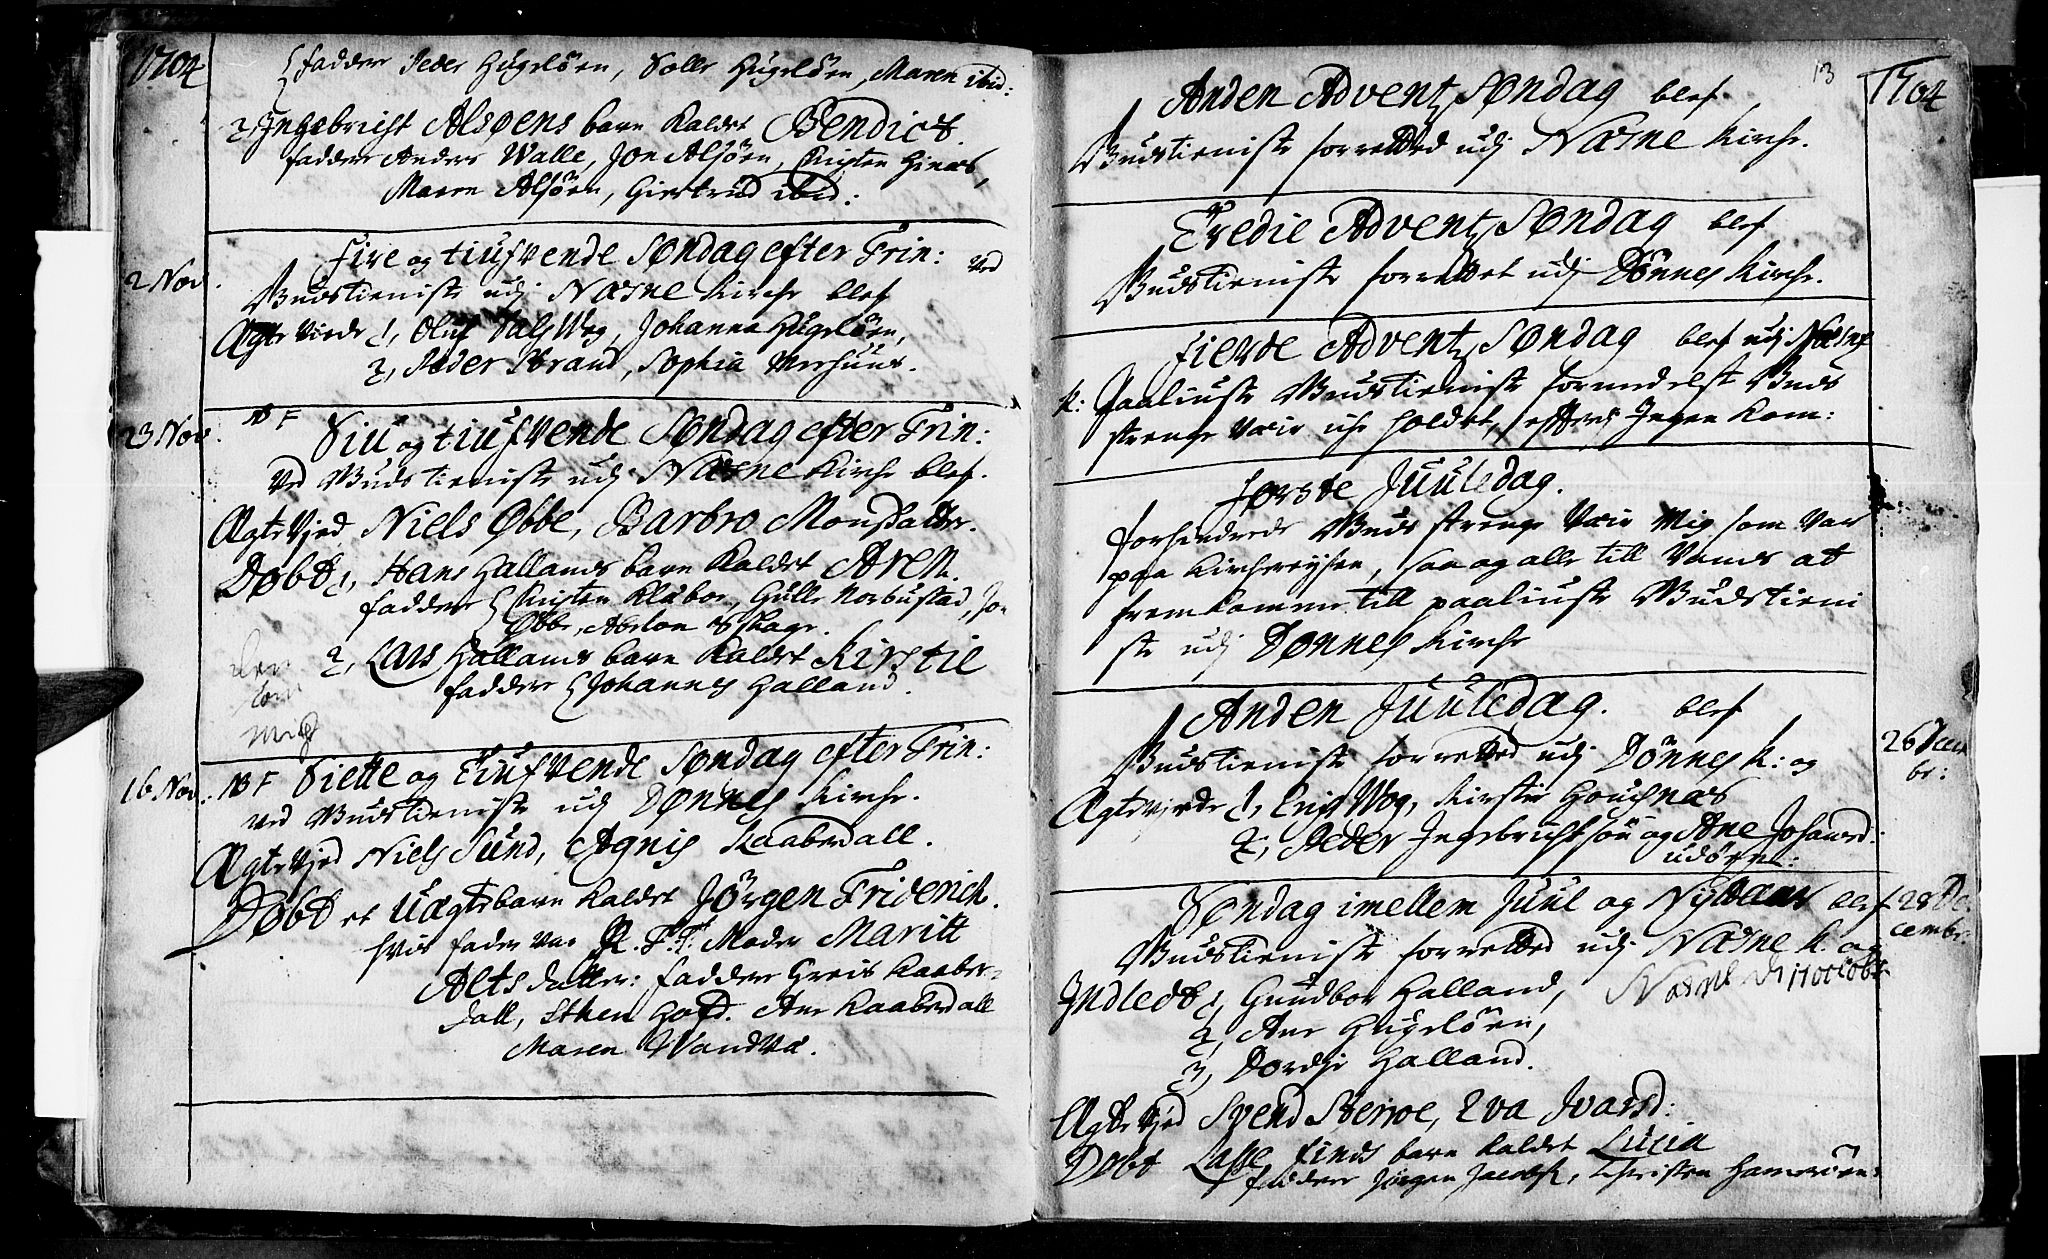 1704
fadder Peder Hugeløen, Solle Hugeløen, Maren ibid:
2, Ingebricht Alsøens barn kaldet Bendict.
fadder Anders Walle, Jon Alsøen, Christen Hinæs,
Maren Alsøen, Giertrud ibid:
Fire og tiufvende Søndag efter Trin: ved
2 Nov.
Gudstieniste udj Næsne Kirche blef
Ægte Viede 1, Oluf Dals Wog, Johanna Hugeløen,
2, Peder Strand, Sophia
23 Nov. NB F Siu og tiufvende Søndag efter Trin:
Ved Gudstieniste udj Næsne Kirche blef.
Ægte Vjed Niels Øbbe, Barbro Monsdatter.
Døbt 1, Hans Hallands barn kaldet Aren.
fadder Christen Klubor, Gulle Norbustad, Jon
Øbbe, Abelon
2, Lars Hallands barn kaldet Kirstie
fadder Johannes Halland.
16 Nov: NB F Siette og Tiufvende Søndag efter Trin:
ved Gudstieniste udj Dønnes Kirche.
Ægte Vjed Niels Sund, Agnis Kaaberdall.
Døbt et Uægte barn kaldet Jörgen Friderich.
hvis fader var Moder Maritt
Alts datter: faddere Greis Kaaber-
dall, Sthen Hofd. Ane Kaaberdall
Maren Wandva.
13
1704
Anden Advents Søndag blef
Gudstieniste forretted udj Næsne Kirche.
Tredie Advents Søndag blef
Gudstieniste forrettet udj Dönnes Kirche.
Fierde Advents Søndag blef udj Næsne
K: Paaliuste Gudstieniste formedelst Guds
strenge Vær iche holdet, efftersom Ingen kom:
Første Juuledag.
Forhindrede Guds strenge Vær Mig som Var
paa Kirchereysen, saa og alle till Vands at
fremkomme till paaliuste Gudstieni
ste udj Dønnes Kirche
Anden Juuledag. blef
26 Decem
br:
Gudstieniste forretted udj Dönnes K: og
Ægte viede 1, Erich Wog, Kirstie Houchnæs
2, Peder Ingebrichtsøn og Ane Johansd:
udöen:
Søndag imellem Juul og Nytaar blef 28 De
cembr:
Gudstieniste forretted udj Næsne K. og
Indledt 1, Gundbor Halland, Næsne
2, Ane Hugeløen,
3, Dordhe Halland.
Ægte Vjed Svend Sterroe, Eva Ivarsd:
Døbt Lasse Finds barn kaldet Lucia
faddere Jørgen Jacobs, Christen Hamerøen: